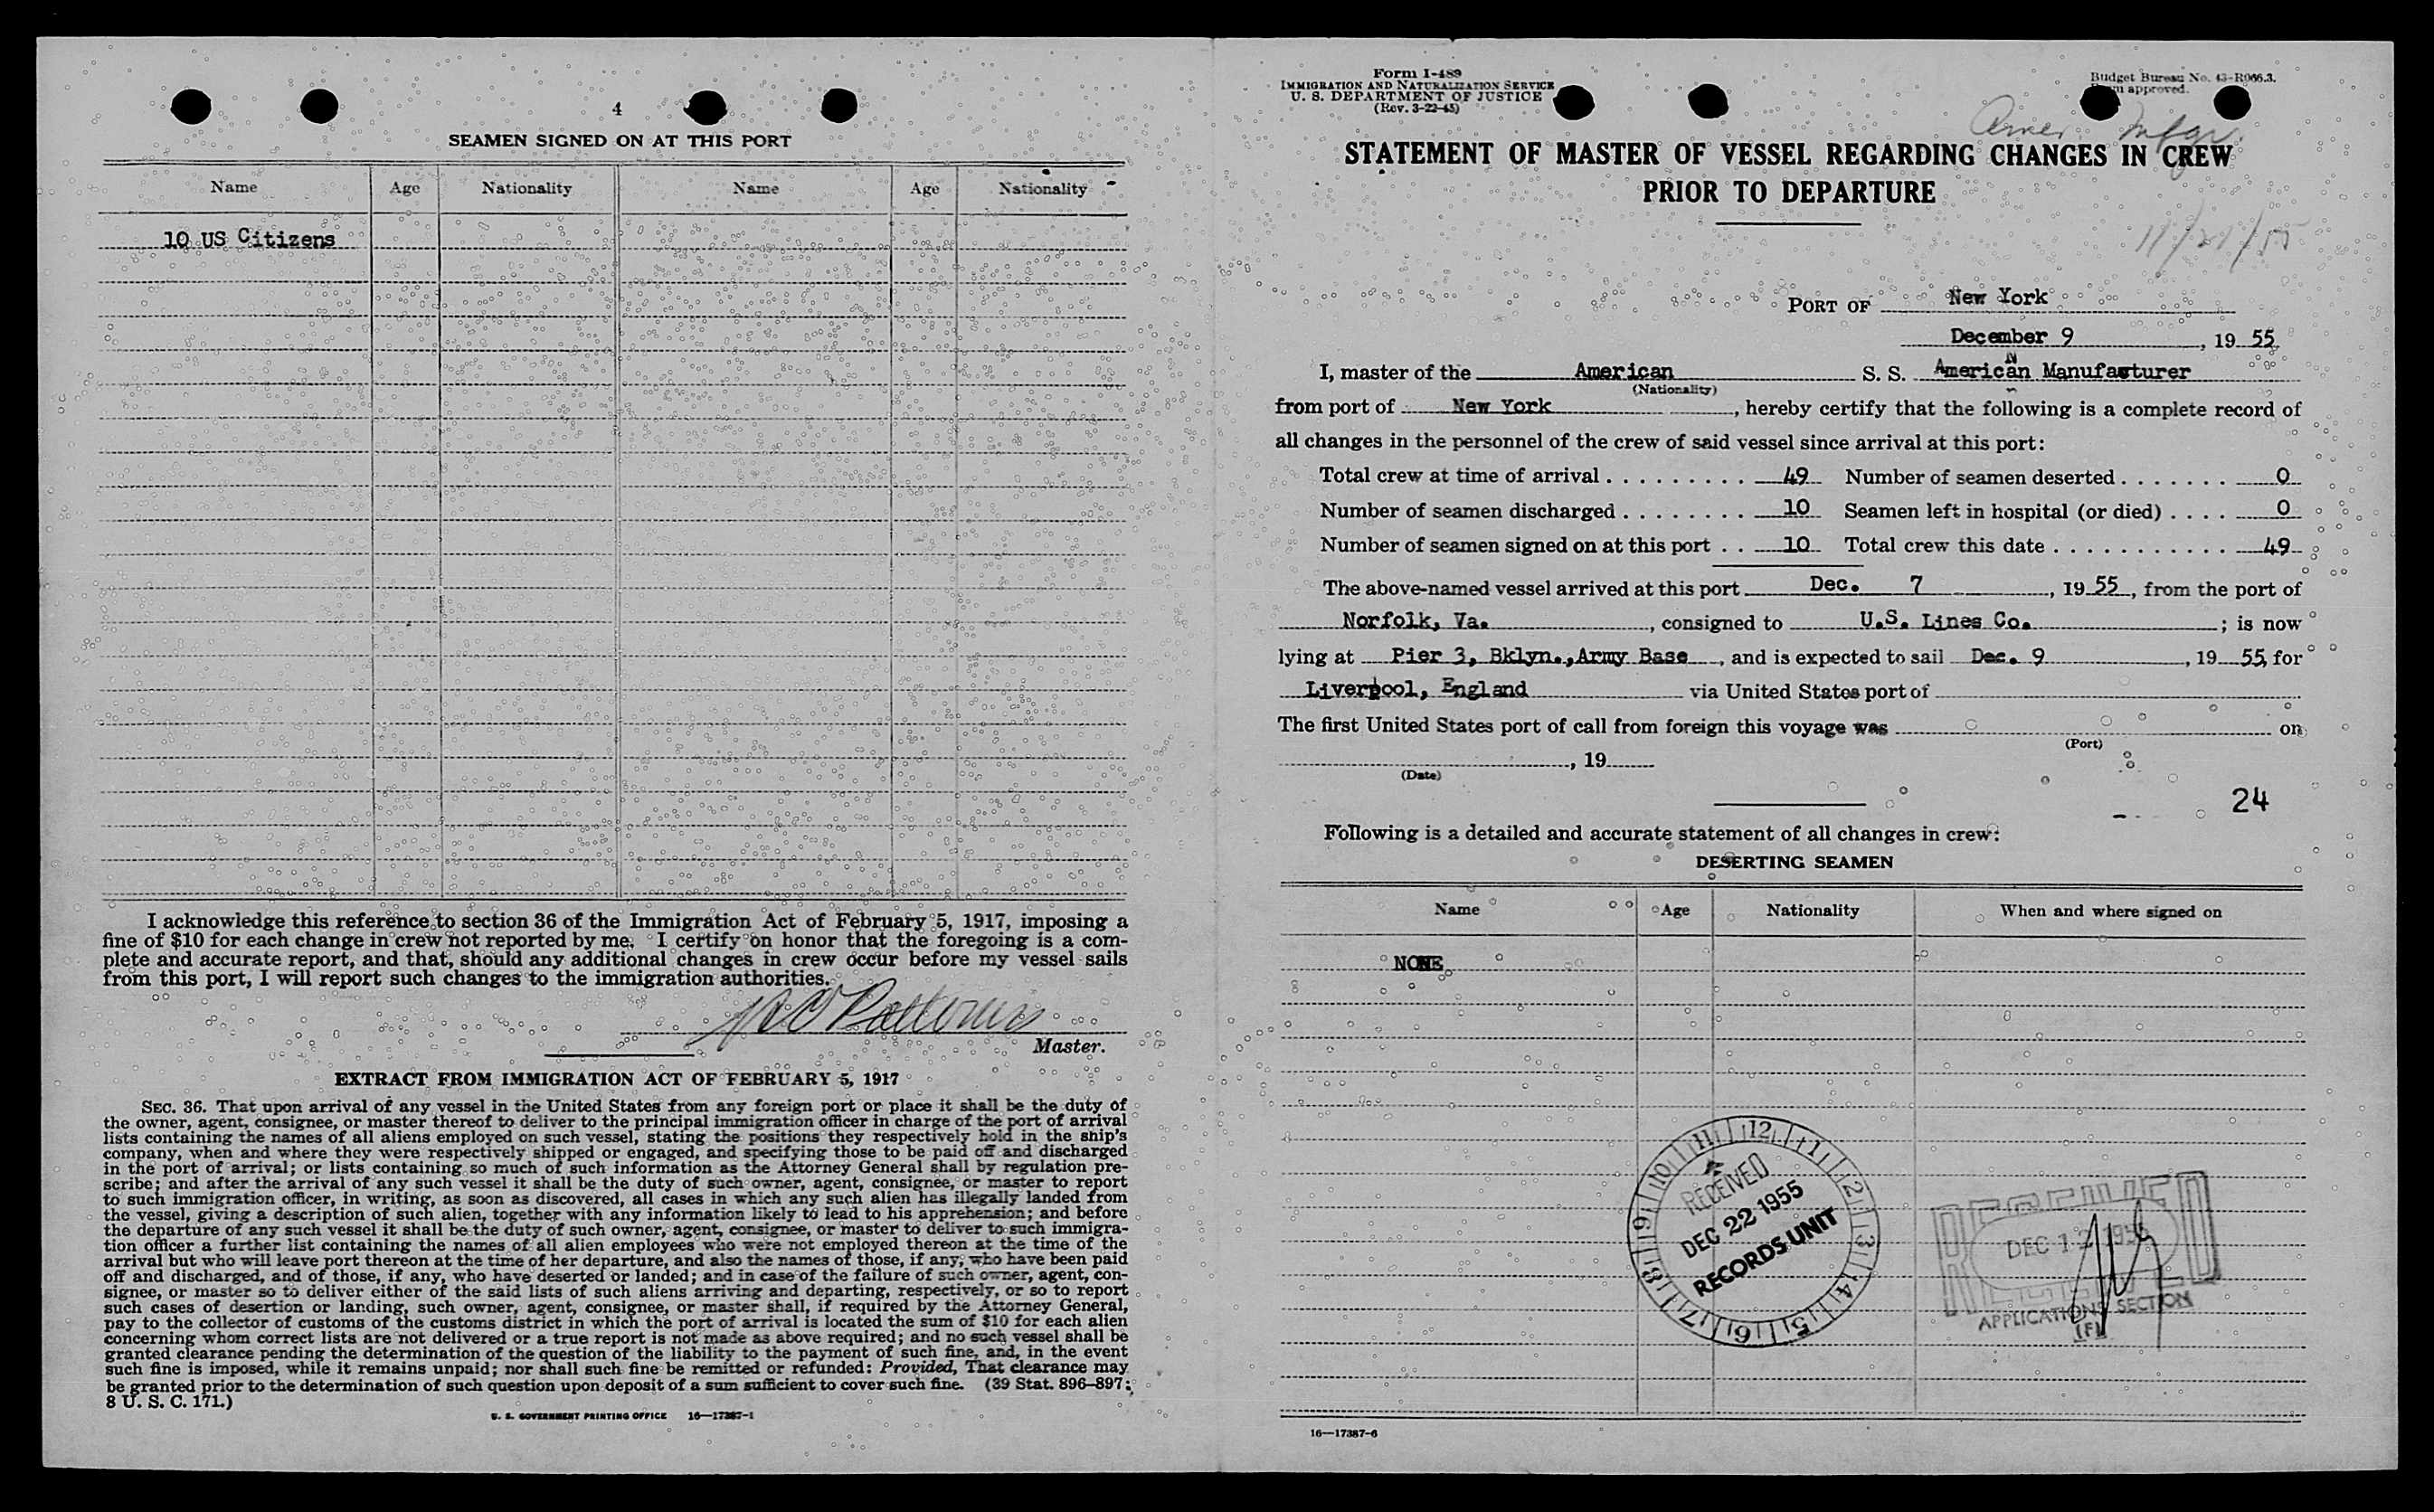 4
SEAMEN SIGNED ON AT THIS PORT
Name Age Nationality Name Age Nationality
10 US Citizens
I acknowledge this reference to section 36 of the Immigration Act of February 5, 1917, imposing a
fine of $10 for each change in crew not reported by me. I certify on honor that the foregoing is a com-
plete and accurate report, and that, should any additional changes in crew occur before my vessel sails
from this port, I will report such changes to the immigration authorities.
Master.
EXTRACT FROM IMMIGRATION ACT OF FEBRUARY 5, 1917
SEC. 36. That upon arrival of any vessel in the United States from any foreign port or place it shall be the duty of
the owner, agent, consignee, or master thereof to deliver to the principal immigration officer in charge of the port of arrival
lists containing the names of all aliens employed on such vessel, stating the positions they respectively hold in the ship's
company, when and where they were respectively shipped or engaged, and specifying those to be paid off and discharged
in the port of arrival; or lists containing so much of such information as the Attorney General shall by regulation pre-
scribe; and after the arrival of any such vessel it shall be the duty of such owner, agent, consignee, or master to report
to such immigration officer, in writing, as soon as discovered, all cases in which any such alien has illegally landed from
the vessel, giving a description of such alien, together with any information likely to lead to his apprehension; and before
the departure of any such vessel it shall be the duty of such owner, agent, consignee, or master to deliver to such immigra-
tion officer a further list containing the names of all alien employees who were not employed thereon at the time of the
arrival but who will leave port thereon at the time of her departure, and also the names of those, if any, who have been paid
off and discharged, and of those, if any, who have deserted or landed; and in case of the failure of such owner, agent, con-
signee, or master so to deliver either of the said lists of such aliens arriving and departing, respectively, or so to report
such cases of desertion or landing, such owner, agent, consignee, or master shall, if required by the Attorney General,
pay to the collector of customs of the customs district in which the port of arrival is located the sum of $10 for each alien
concerning whom correct lists are not delivered or a true report is not made as above required; and no such vessel shall be
granted clearance pending the determination of the question of the liability to the payment of such fine, and, in the event
such fine is imposed, while it remains unpaid; nor shall such fine be remitted or refunded: Provided, That clearance may
be granted prior to the determination of such question upon deposit of a sum sufficient to cover such fine. (39 Stat. 896–897;
8 U. S. C. 171.)
U. S. GOVERNMENT PRINTING OFFICE 16—17387-1
Form I-489
IMMIGRATION AND NATURALIZATION SERVICE
U. S. DEPARTMENT OF JUSTICE
(Rev. 3-22-45)
Budget Bureau No. 43-R066.3.
approved.
Amer. Mfgr.
STATEMENT OF MASTER OF VESSEL REGARDING CHANGES IN CREW
PRIOR TO DEPARTURE
11/21/55
PORT OF New York
December 9, 19 55
I, master of the American S. S. American Manufacturer
(Nationality)
from port of New York, hereby certify that the following is a complete record of
all changes in the personnel of the crew of said vessel since arrival at this port:
Total crew at time of arrival 49 Number of seamen deserted 0
Number of seamen discharged 10 Seamen left in hospital (or died) 0
Number of seamen signed on at this port 10 Total crew this date 49
The above-named vessel arrived at this port Dec. 7, 19 55, from the port of
Norfolk, Va., consigned to U.S. Lines Co.; is now
lying at Pier 3, Bklyn., Army Base, and is expected to sail Dec. 9, 19 55, for
Liverpool, England via United States port of
The first United States port of call from foreign this voyage was on
(Port)
, 19
(Date)
24
Following is a detailed and accurate statement of all changes in crew:
DESERTING SEAMEN
Name Age Nationality When and where signed on
NONE
11 12 1 2 3 4 5 6 7 8 9 10
RECEIVED
DEC 22 1955
RECORDS UNIT
RECEIVED
DEC 12 1955
APPLICATIONS SECTION
(F)
16—17387-6